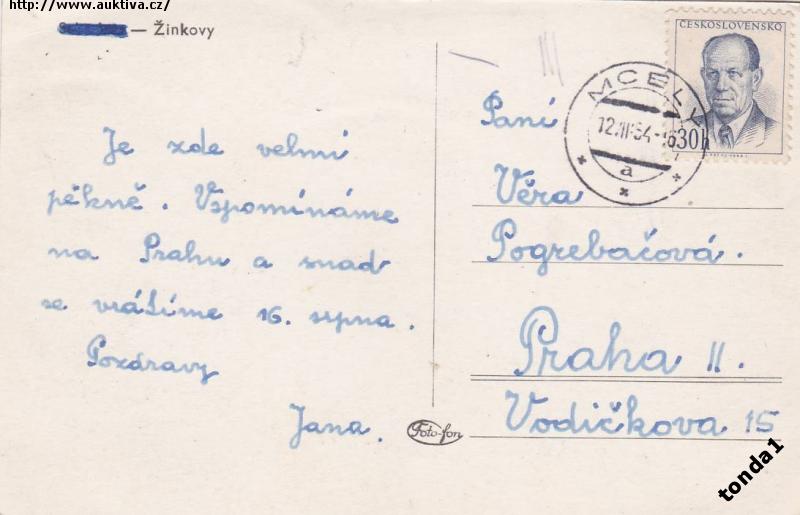 http://www.auktiva.cz/
— Žinkovy
Je zde velmi
pěkně. Vzpomínáme
na Prahu a snad
se vrátíme 16. srpna.
Pozdravy
Jana.
Foto-fon
ČESKOSLOVENSKO
30h
MCELY
a
Paní
Věra
Pogrebačová.
Praha II.
Vodičkova 15
tonda1